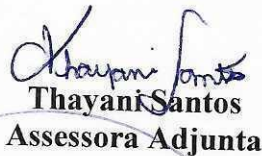 Thayani Santos
Thayani Santos
Assessora Adjunta